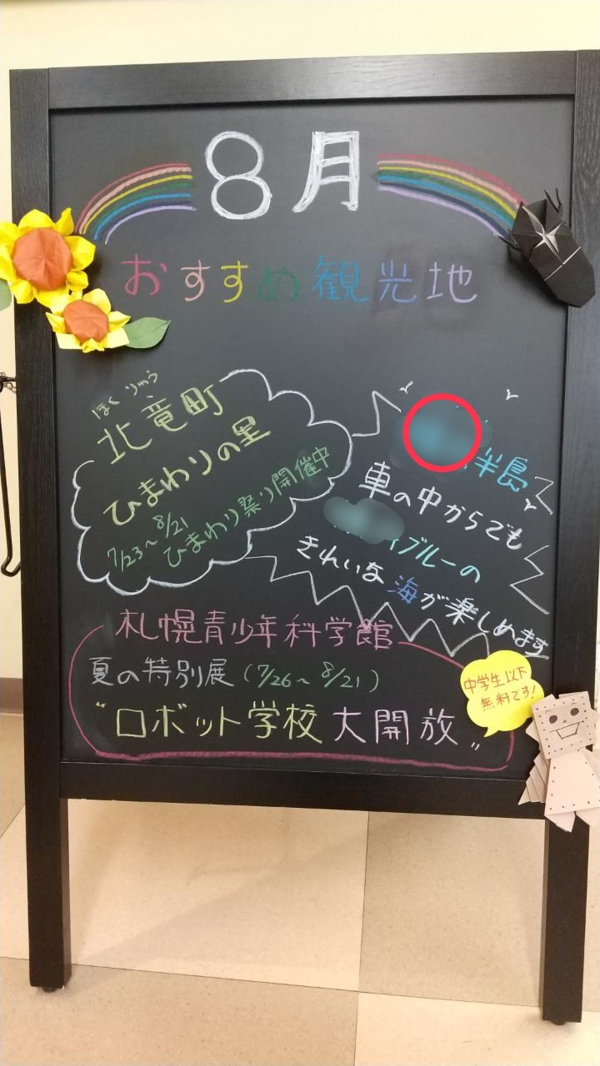 8月
おすすめ観光地
ほくりゅう
北竜町
ひまわりの里
7/23〜8/21 ひまわり祭り開催中
半島
車の中からでも
ィブルーの
きれいな海が楽しめます
札幌青少年科学館
夏の特別展(7/26〜8/21)
"ロボット学校大開放"
中学生以下
無料です!